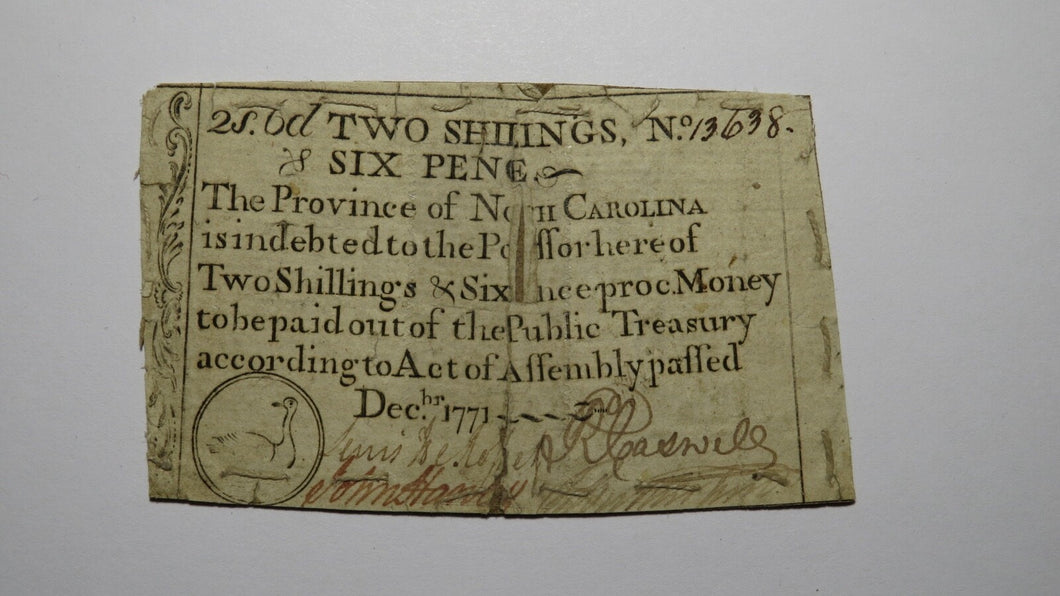 2S. 6d TWO SHILINGS, No. 13638.
& SIX PENE
The Province of North CAROLINA
is indebted to the Po ſſor here of
Two Shillings & Six nce proc. Money
to be paid out of the Public Treasury
according to Act of Aſſembly paſſed
Dec.br 1771
Lewis De Rosset RCaswell
John Harvey